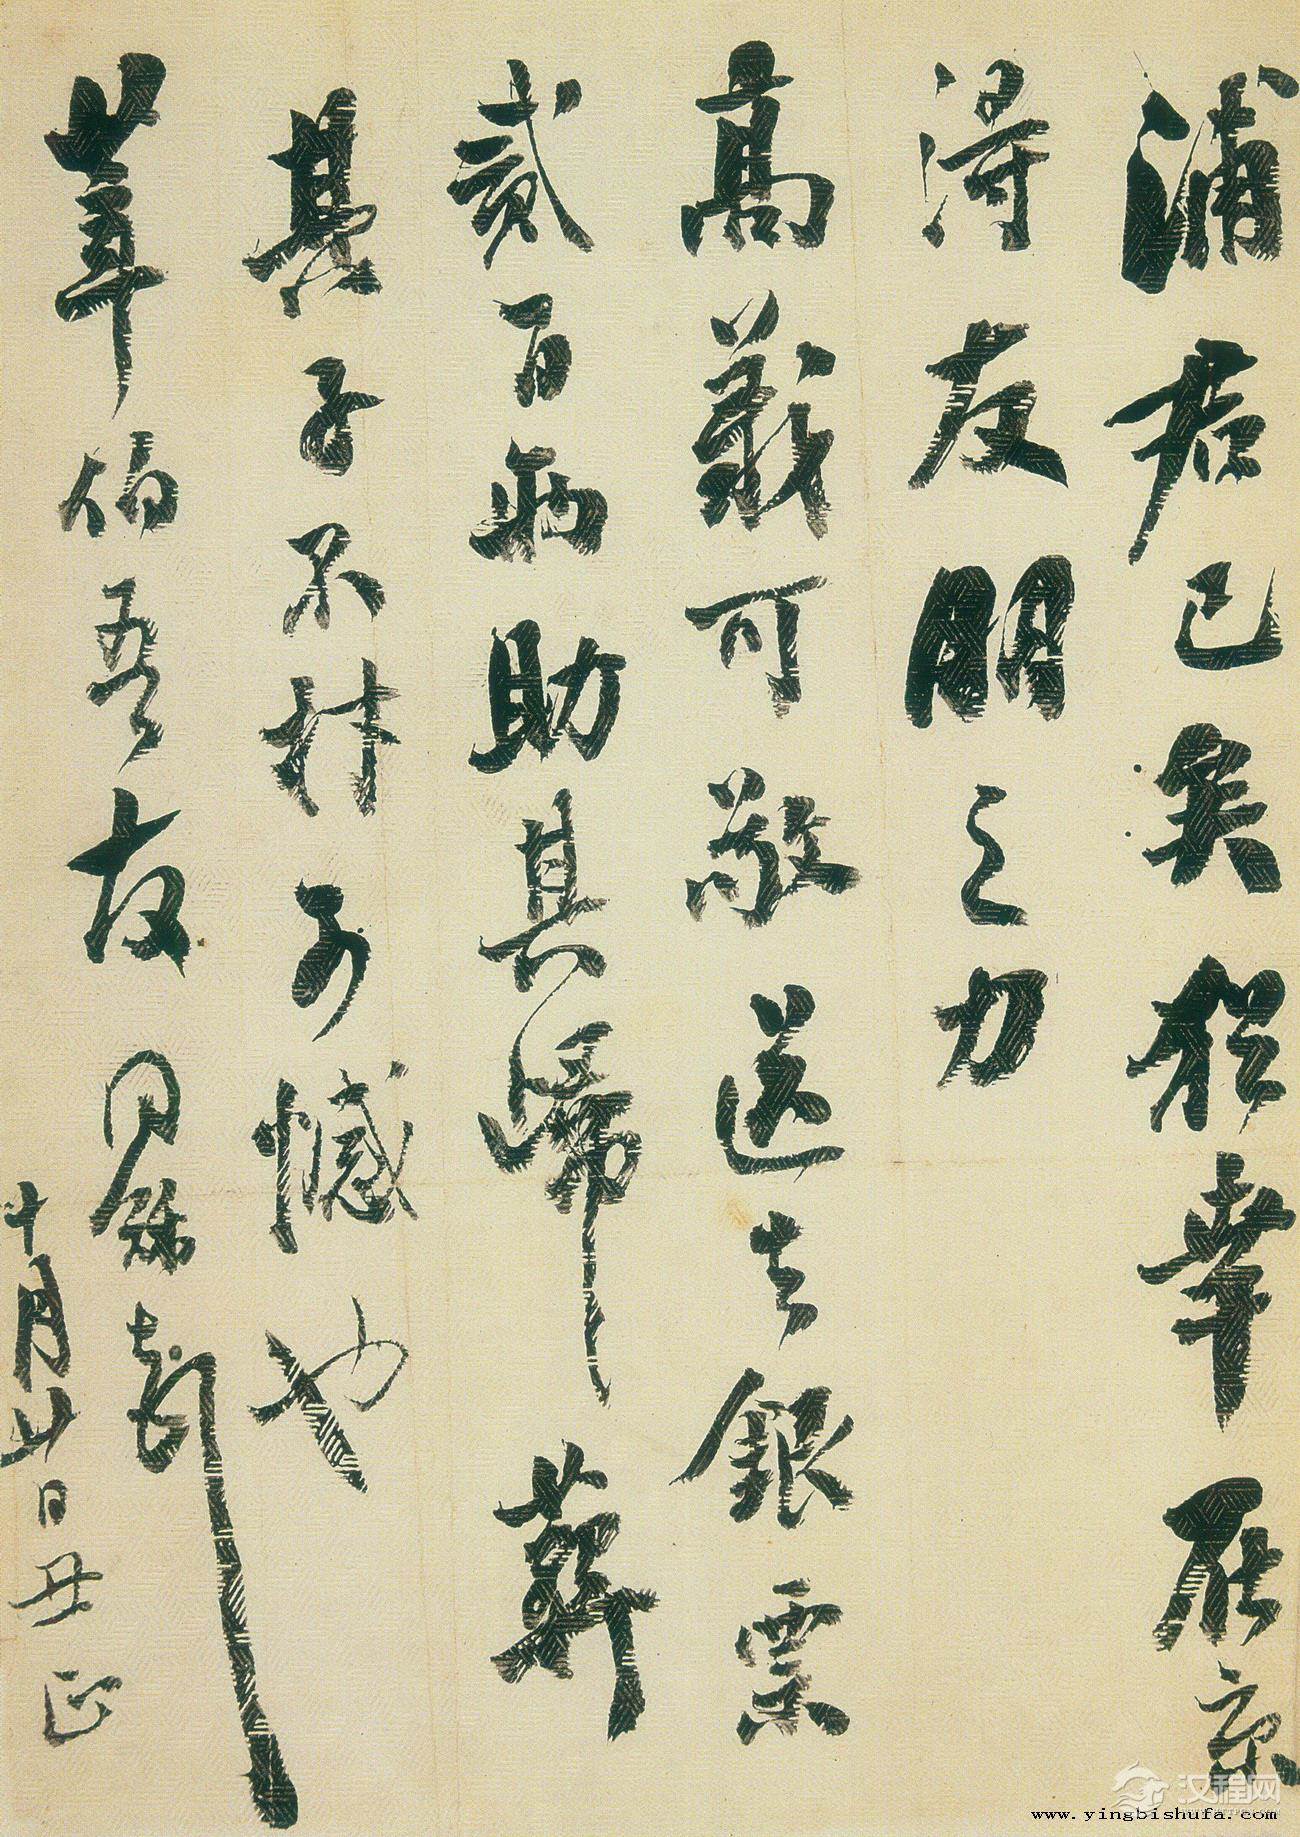 浦君已矣猶幸在京
得友朋之力
高義可敬送去銀票
貳百兩助其歸葬
其子不材可憾也
葦伯吾友 同龢頓
十月廿日丑正
汉程网
www.yingbishufa.com